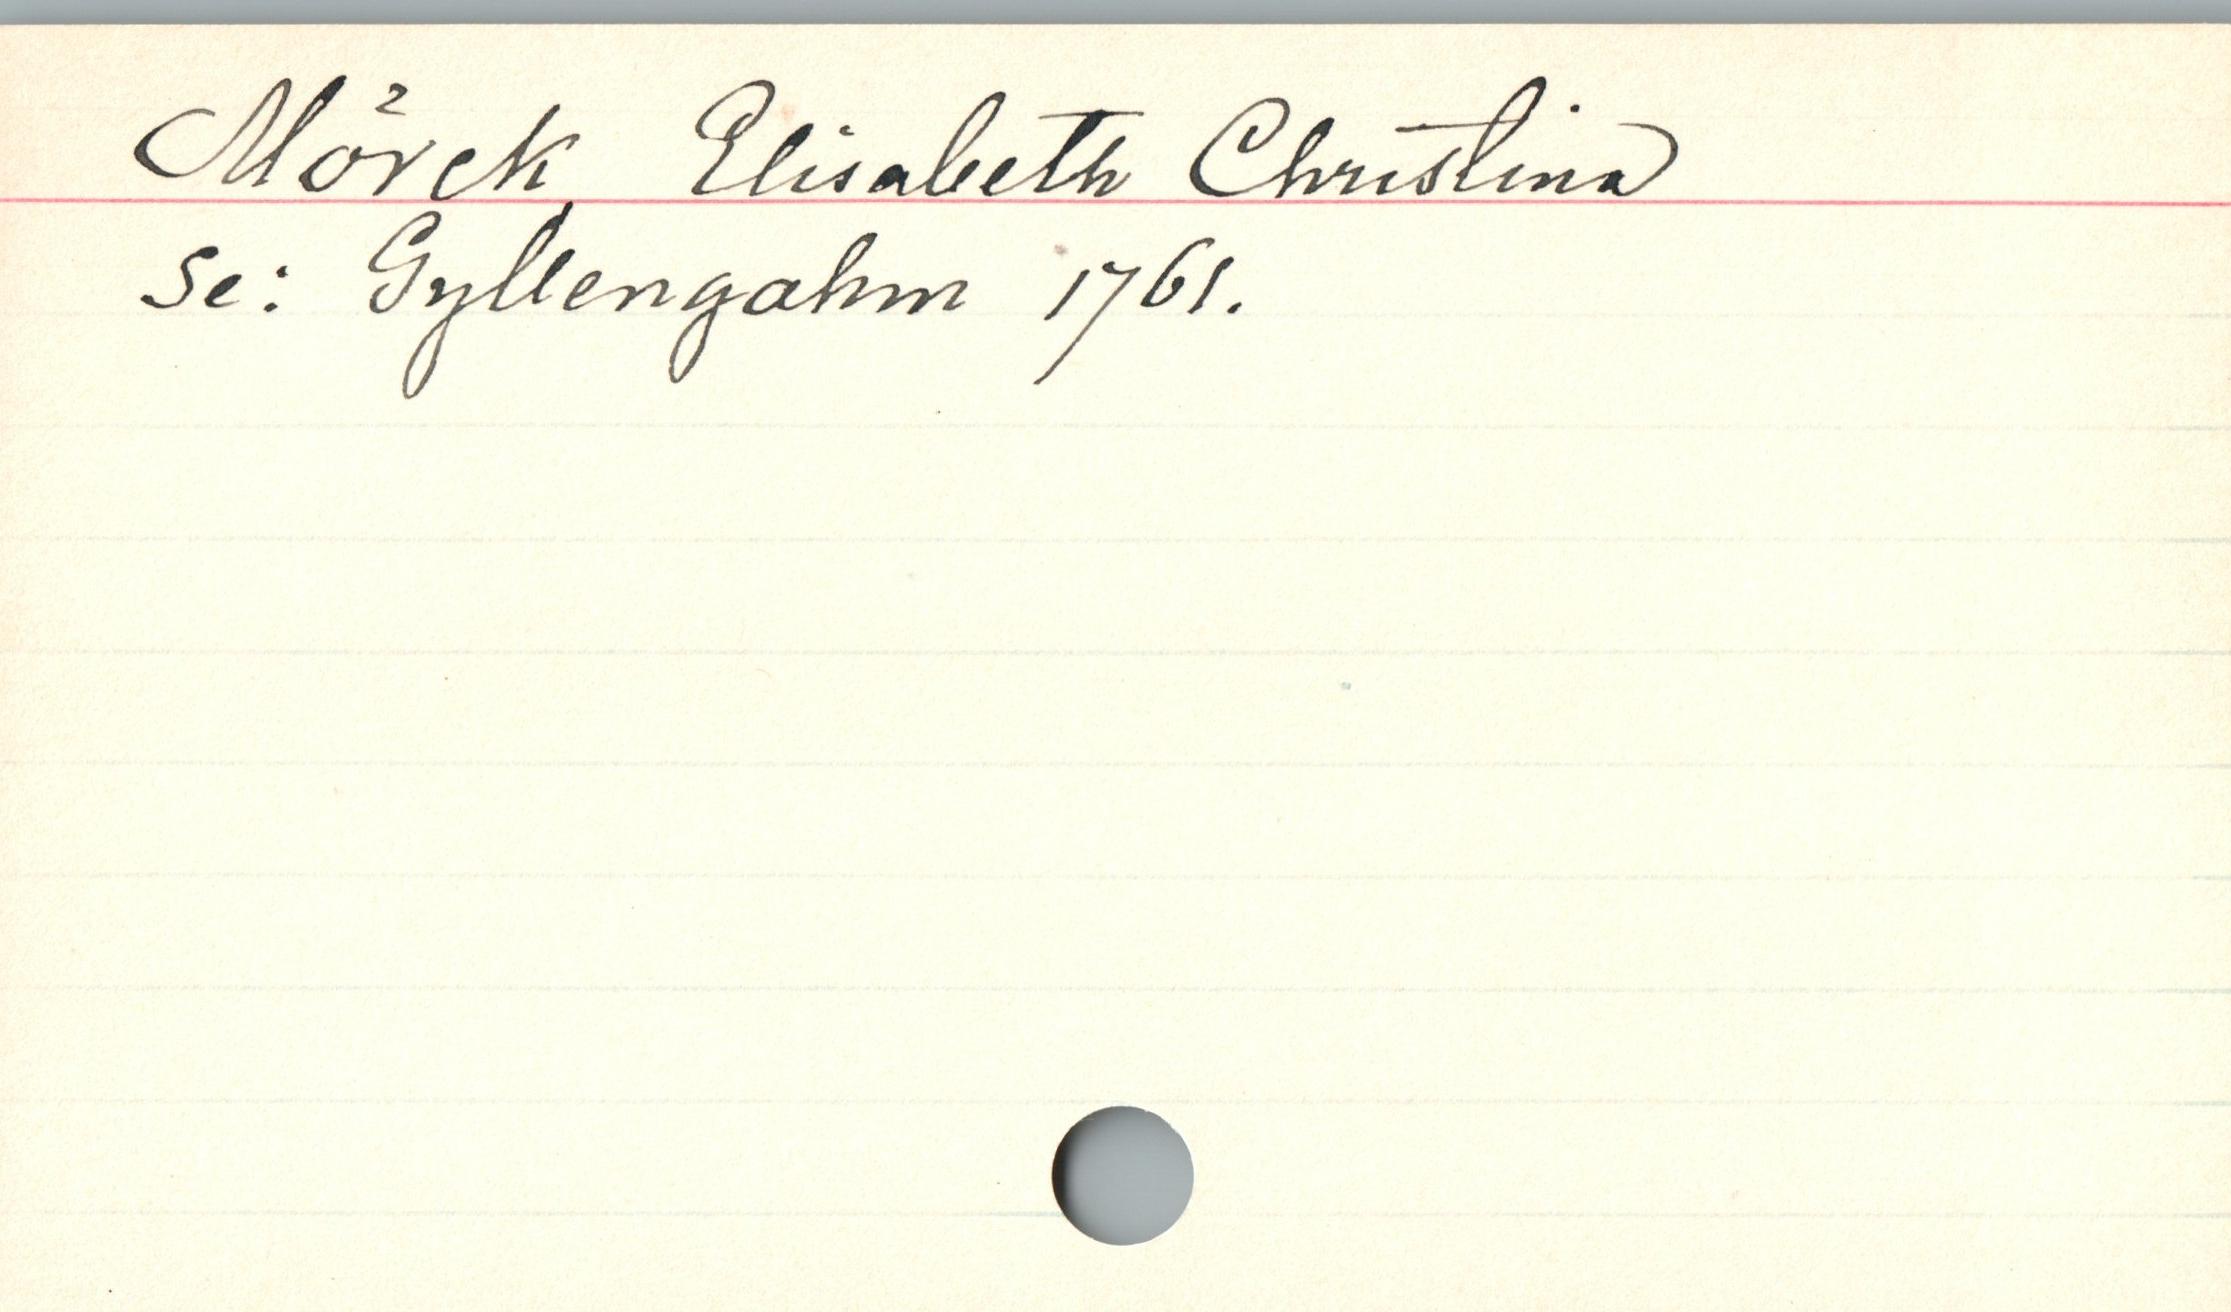 Mörck Elisabeth Christina
se: Gyllengahm 1761.